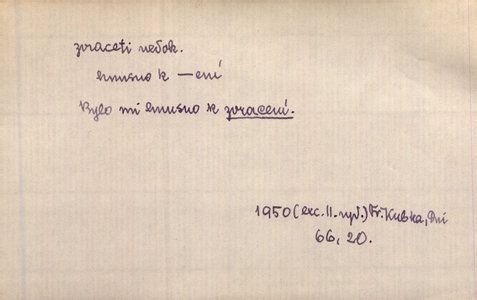 zvraceti nedok.
hnusno k —ení
Bylo mi hnusno k zvracení.
1950 (exc. II. vyd.) Fr. Kubka, Dni
66, 20.